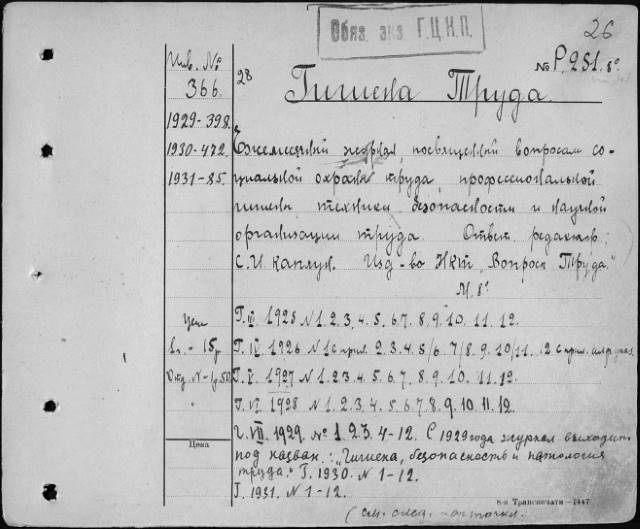 Обяз. экз. Г.Ц.К.П.
26
Инв. №
366
1929-398
1930-472
1931-85
28
№ Р.251. 8°
Гигиена Труда.
Ежемесячный журнал, посвященный вопросам со-
циальной охраны труда, профессиональной
гигиены техники безопасности и научной
организации труда. Ответ. редактор:
С.И. Каплун. Изд-во НКТ „Вопросы Труда."
М. 8°
Г. III 1925 N 1. 2. 3. 4. 5. 6. 7. 8. 9. 10. 11. 12.
Цена
Г. IV 1926 N 1 с прил. 2. 3. 4. 5/6. 7/8. 9. 10/11. 12 с прил. алф. указ.
- 15р
Г. V 1927 N 1. 2. 3. 4. 5. 6. 7. 8. 9. 10. 11. 12.
Отд. N - 1р.50
Г. VI 1928 N 1. 2. 3. 4. 5. 6. 7. 8. 9. 10. 11. 12.
Г. VII. 1929. № 1. 2. 3. 4-12. С 1929 года журнал выходит
под назван.: „Гигиена, безопасность и патология
труда." Г. 1930. N 1-12.
Г. 1931. N 1-12.
Цена
8-я Транспечати—1847
(см. след. карточку.